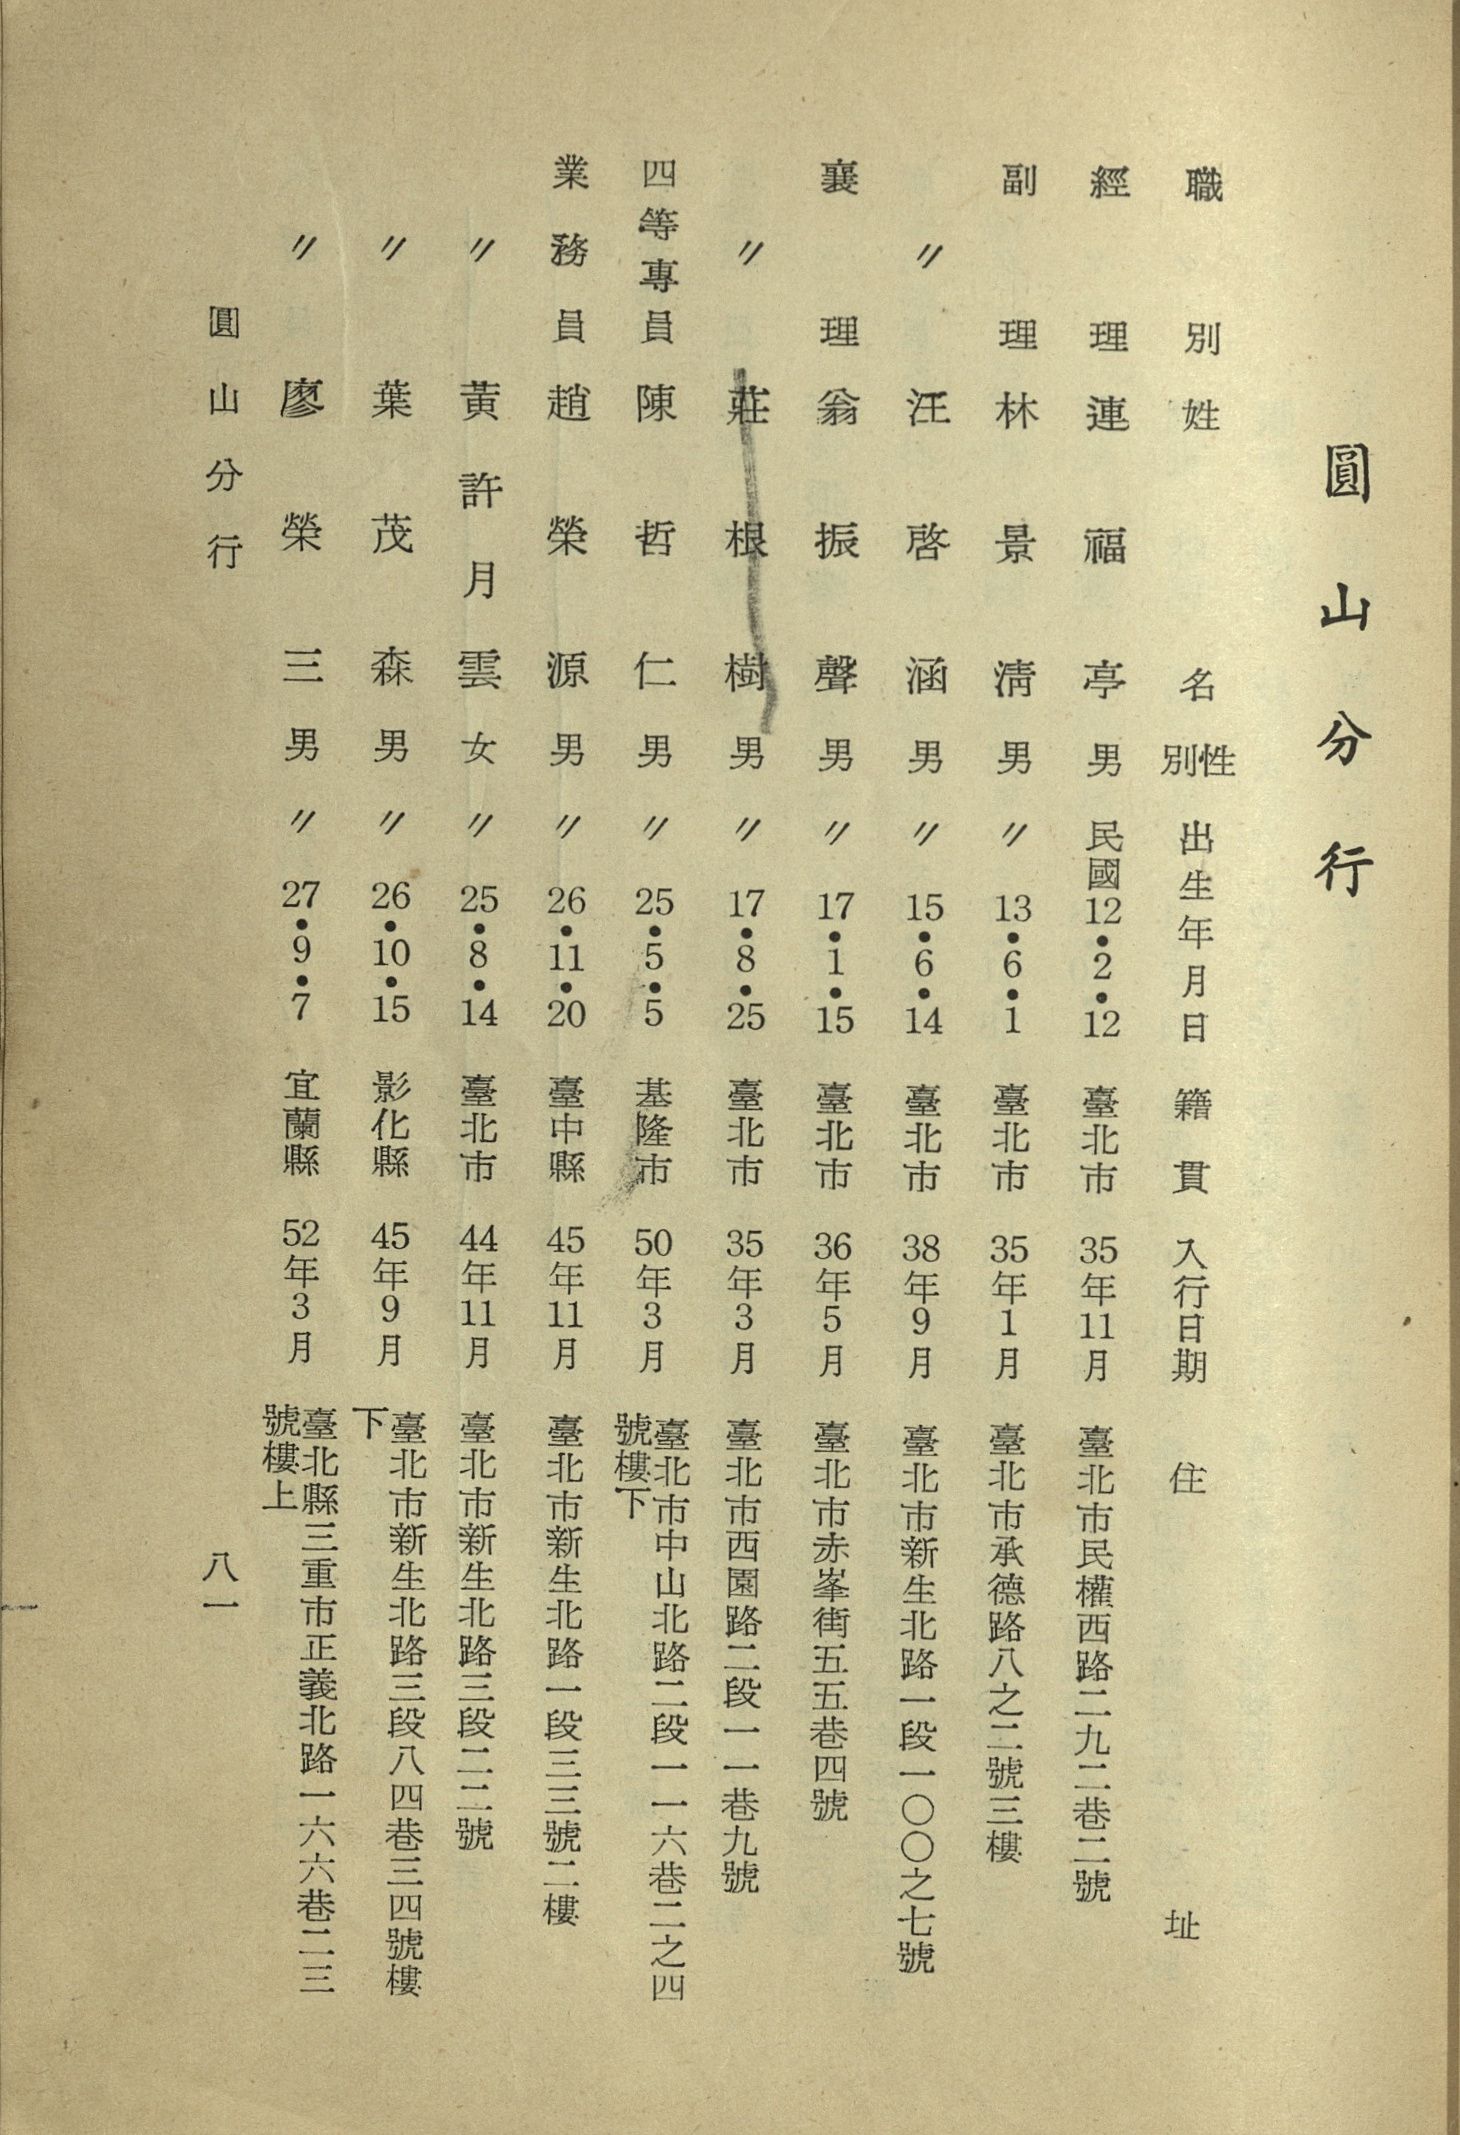 圓山分行
職別 姓名 性別 出生年月日 籍貫 入行日期 住址
經理 連福亭 男 民國12•2•12 臺北市 35年11月 臺北市民權西路二九二巷二號
副理 林景淸 男 〃13•6•1 臺北市 35年1月 臺北市承德路八之二號三樓
〃 汪啓涵 男 〃15•6•14 臺北市 38年9月 臺北市新生北路一段一〇〇之七號
襄理 翁振聲 男 〃17•1•15 臺北市 36年5月 臺北市赤峯街五五巷四號
〃 莊根樹 男 〃17•8•25 臺北市 35年3月 臺北市西園路二段一一巷九號
四等專員 陳哲仁 男 〃25•5•5 基隆市 50年3月 臺北市中山北路二段一一六巷二之四
號樓下
業務員 趙榮源 男 〃26•11•20 臺中縣 45年11月 臺北市新生北路一段三三號二樓
〃 黃許月雲 女 〃25•8•14 臺北市 44年11月 臺北市新生北路三段二二號
〃 葉茂森 男 〃26•10•15 影化縣 45年9月 臺北市新生北路三段八四巷三四號樓
下
〃 廖榮三 男 〃27•9•7 宜蘭縣 52年3月 臺北縣三重市正義北路一六六巷二三
號樓上
圓山分行 八一